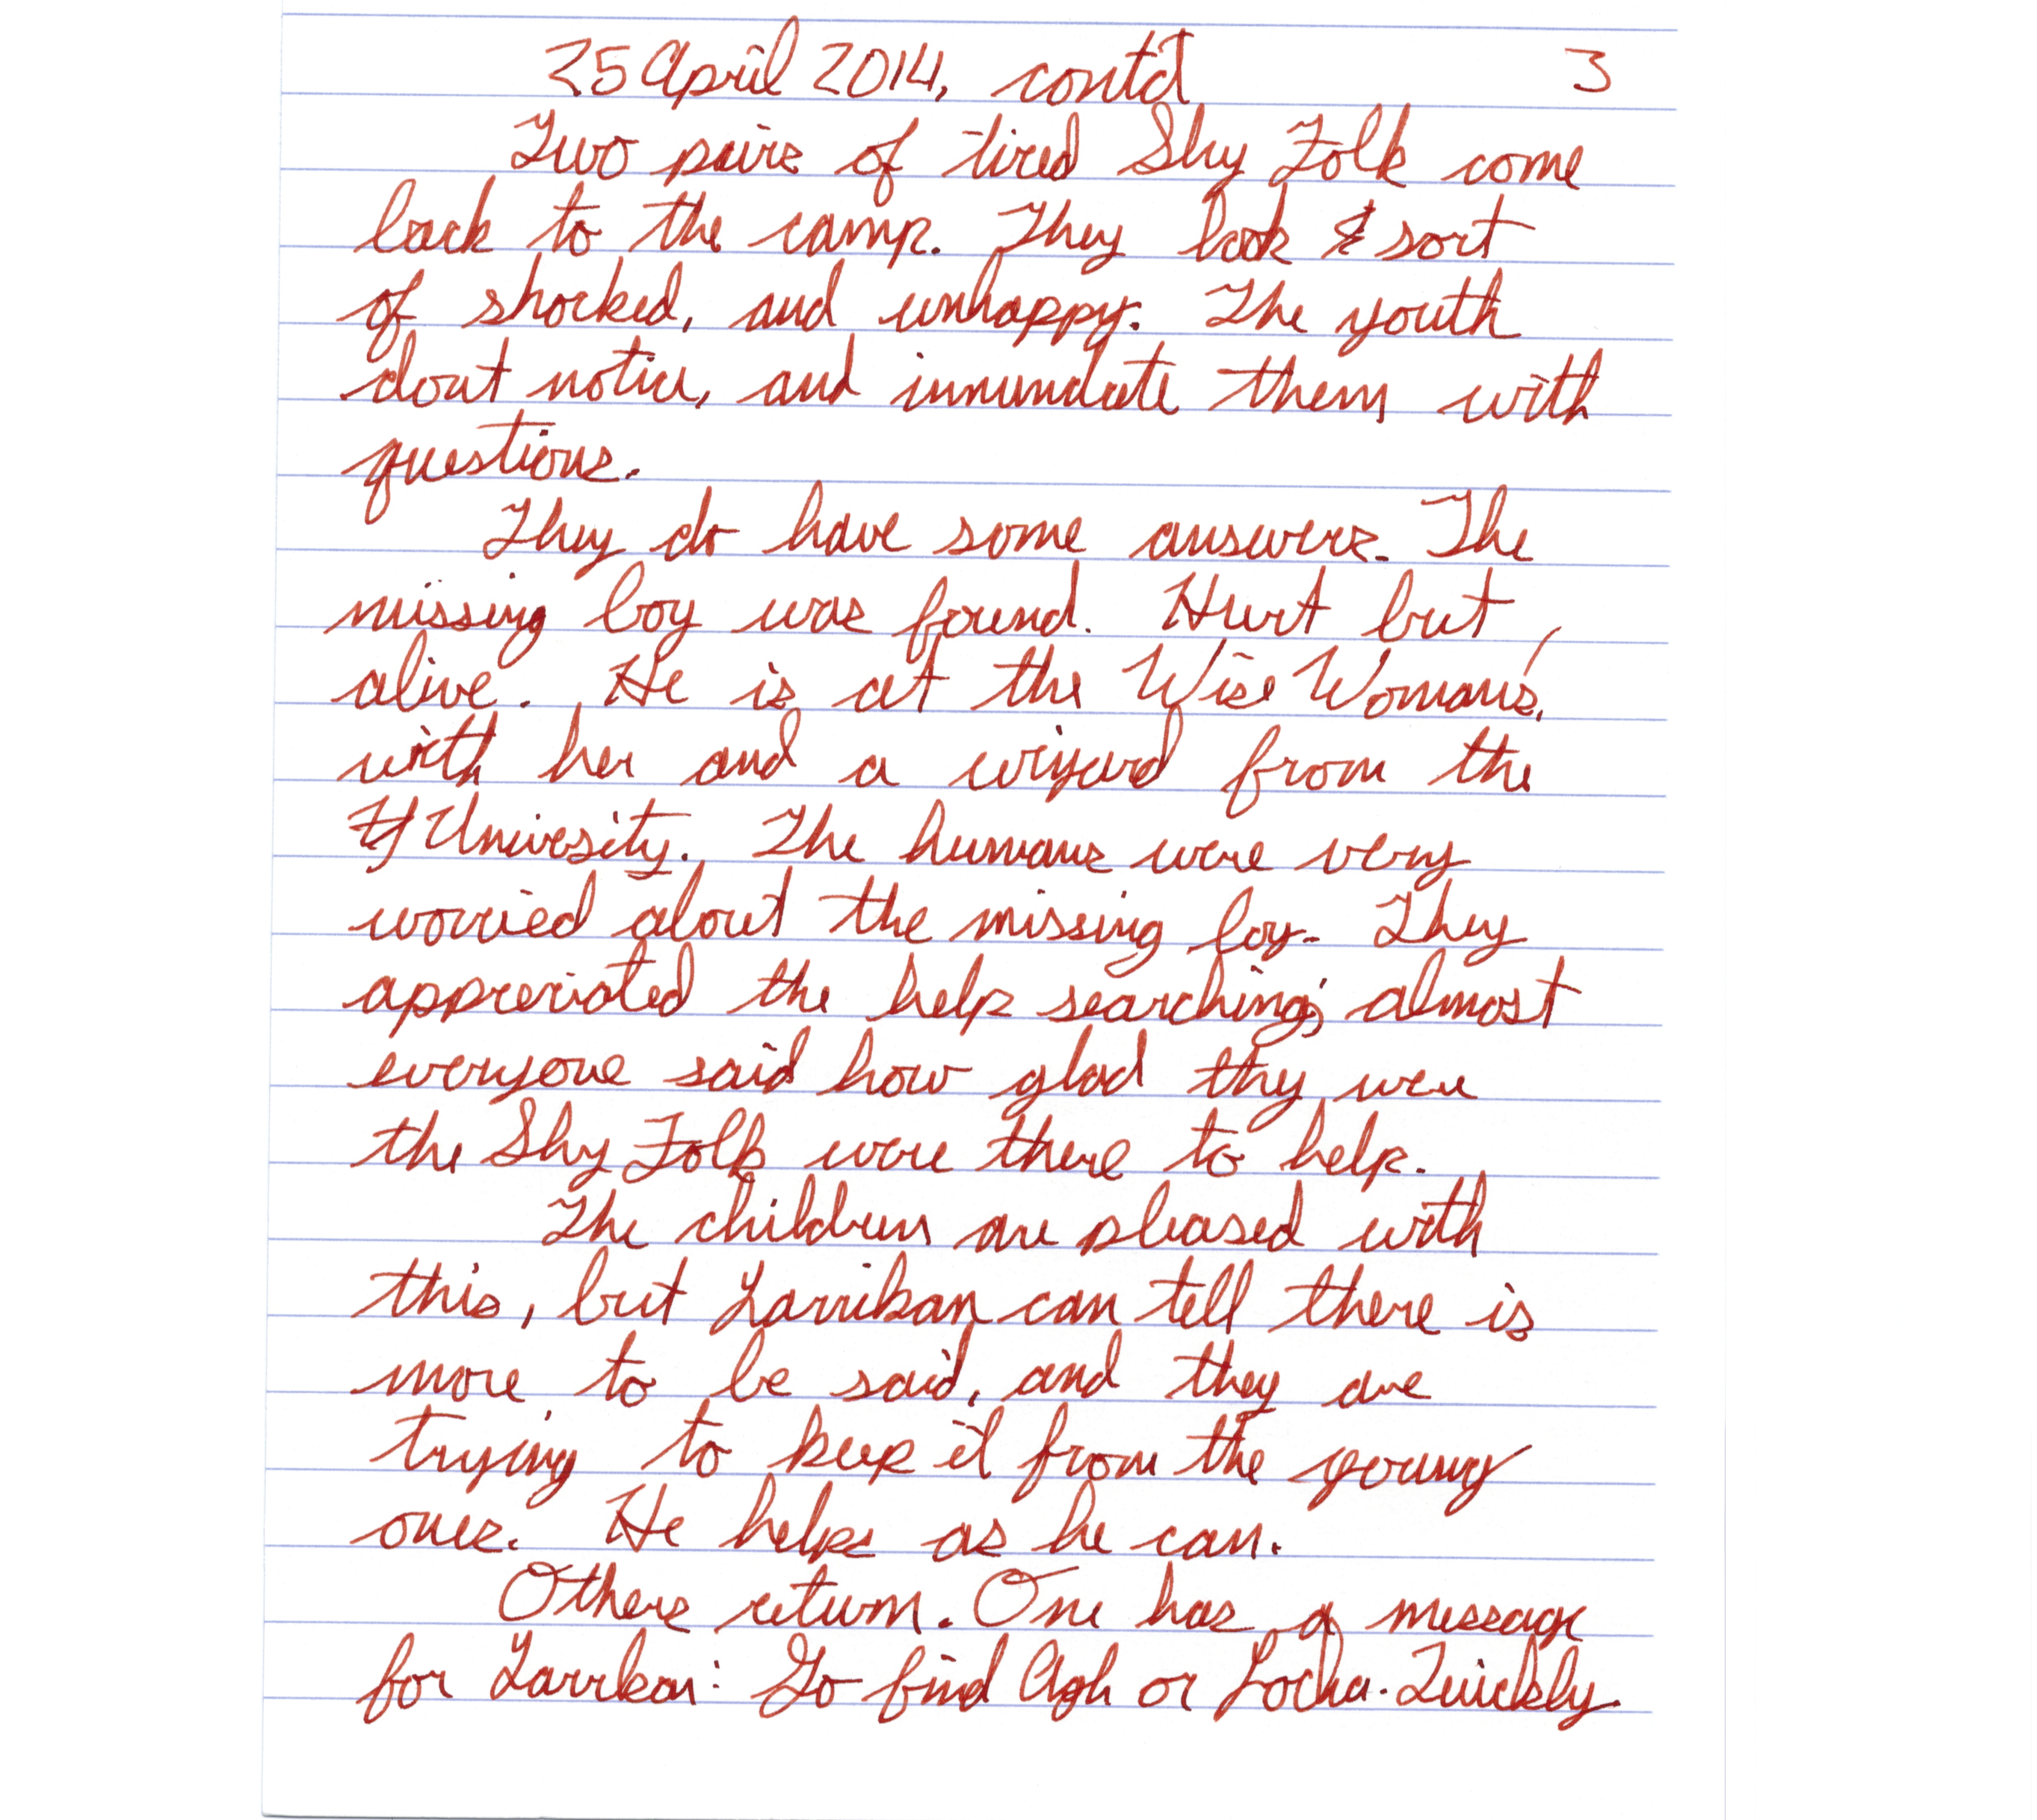 25 April 2014, contd 3
Two pairs of tired Shy Folk come
back to the camp. They look & sort
of shocked, and unhappy. The youth
dont notice, and innundate them with
questions.
They do have some answers. The
missing boy was found. Hurt but
alive. He is at the Wise Woman's,
with her and a wizard from the
University. The humans were very
worried about the missing boy. They
appreciated the help searching; almost
everyone said how glad thy were
the Shy Folk were there to help.
The children are pleased with
this, but Larrikan can tell there is
more to be said, and they are
trying to keep it from the young
ones. He helps as he can.
Others return. One has a message
for Larrikan: Go find Agh or Locha. Quickly.